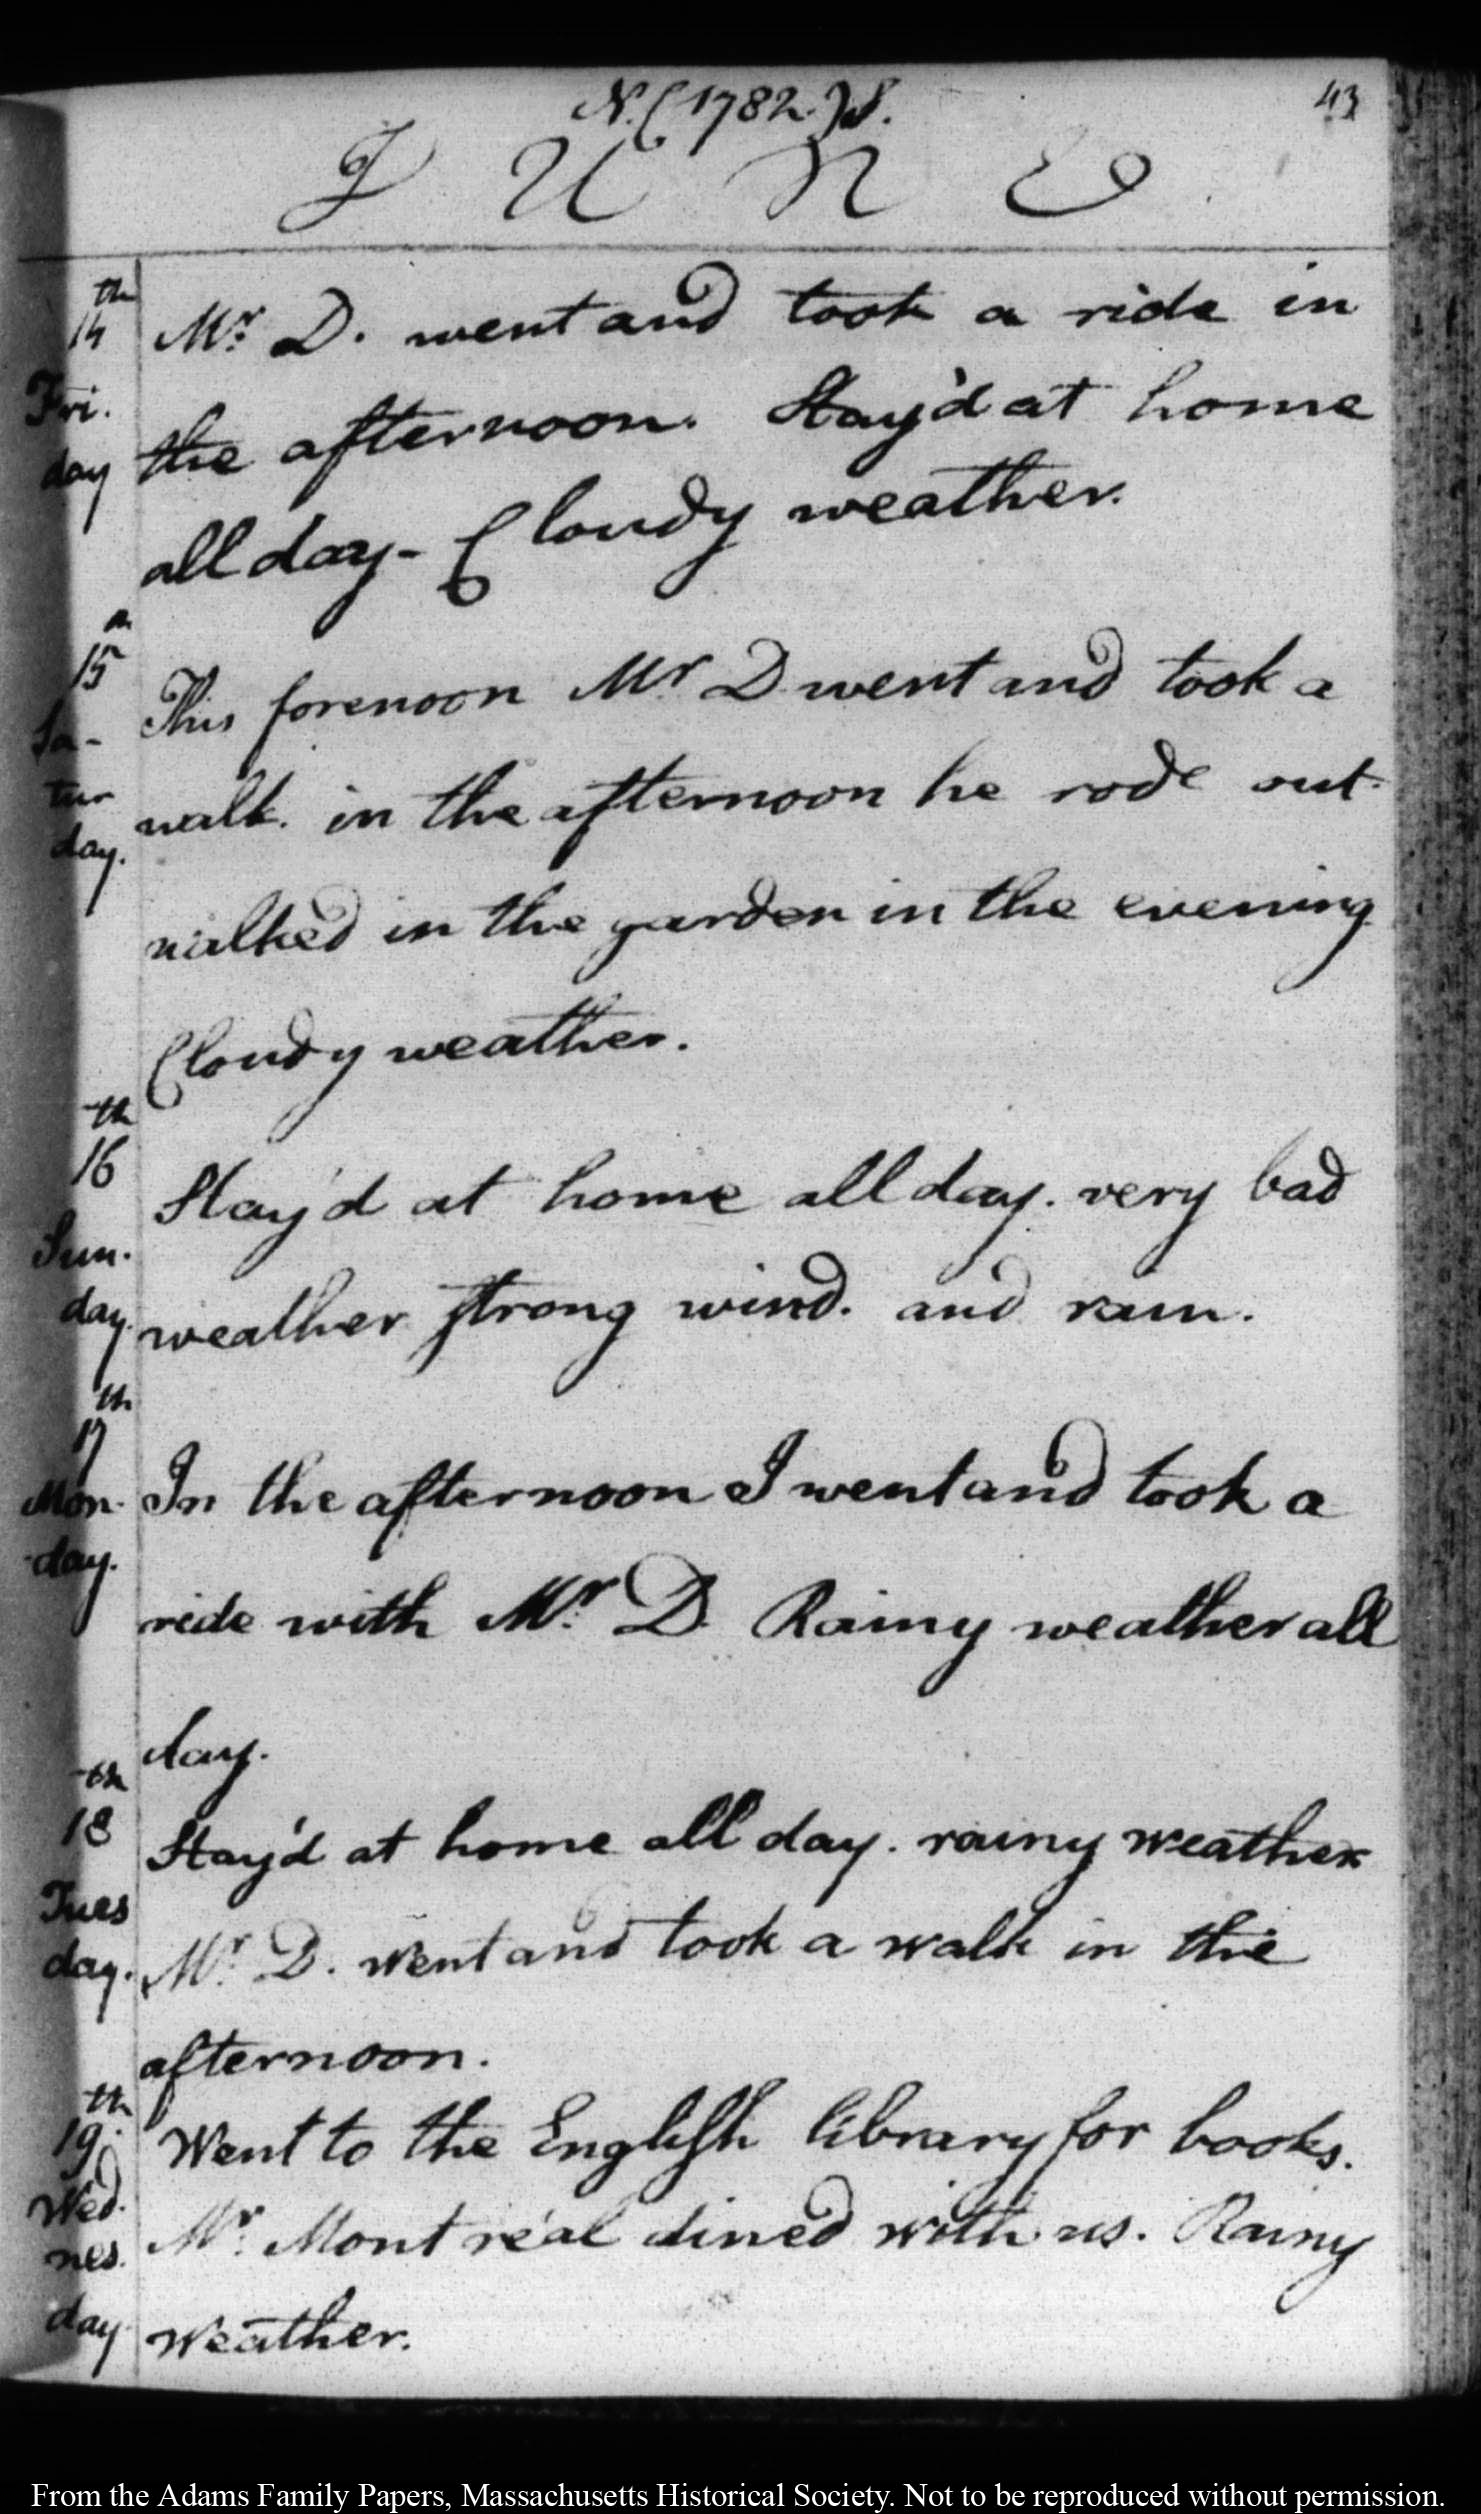 N. (1782.) S.
43
J U N E
14th
Fri.
day
Mr. D. went and took a ride in
the afternoon. Stay'd at home
all day - Cloudy weather.
15
Sa-
tur
day.
This forenoon Mr D went and took a
walk. in the afternoon he rode out.
walked in the garden in the evening
Cloudy weather.
16th
Sun.
day.
Stay'd at home all day. very bad
weather strong wind. and rain.
17th
Mon.
day.
In the afternoon I went and took a
ride with Mr. D. Rainy weather all
day.
18th
Tues
day.
Stay'd at home all day. rainy weather
Mr. D. went and took a walk in the
afternoon.
19th
Wed.
nes.
day
Went to the English library for books.
Mr. Montreal dined with us. Rainy
weather.
From the Adams Family Papers, Massachusetts Historical Society. Not to be reproduced without permission.